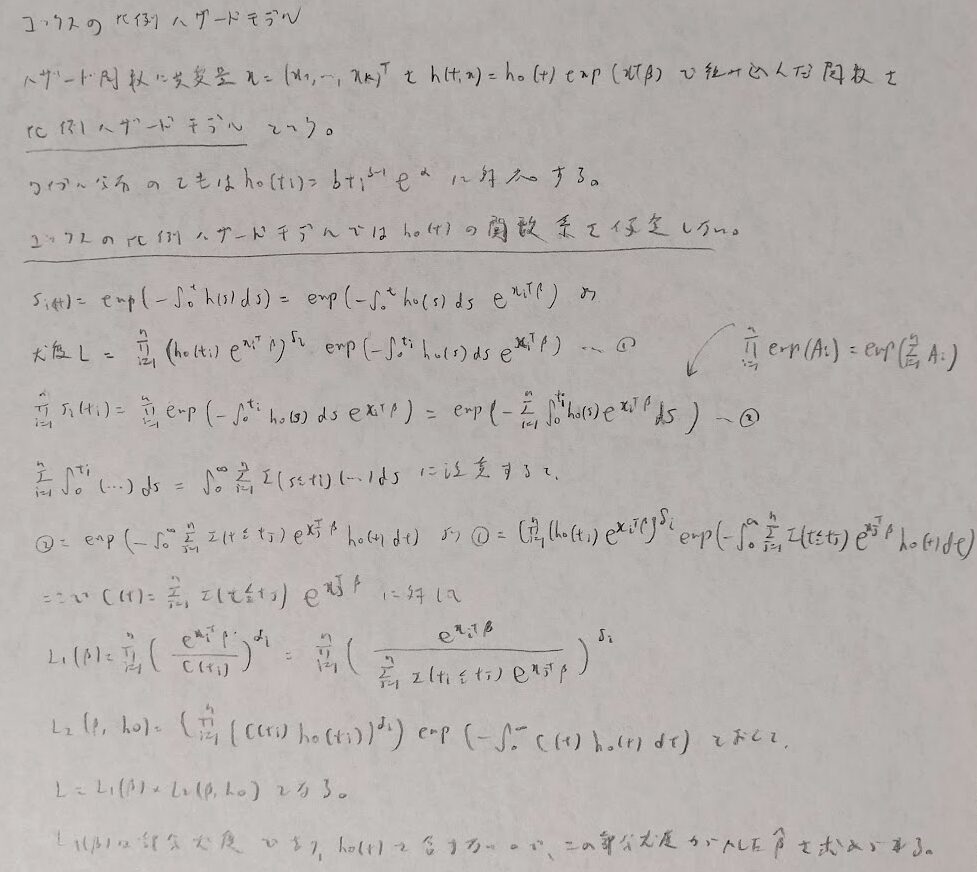 コックスの比例ハザードモデル
ハザード関数に共変量 x = (x₁, …, xₖ)ᵀ を h(t,x) = h₀(t) exp(xᵀβ) で組み込んだ関数を
比例ハザードモデル という。
ワイブル分布のときは h₀(tᵢ) = btᵢᵇ⁻¹ eᵅ に対応する。
コックスの比例ハザードモデルでは h₀(t) の関数系を仮定しない。
Sᵢ(t) = exp(-∫₀ᵗ h(s) ds) = exp(-∫₀ᵗ h₀(s) ds e^{xᵢᵀβ}) より
尤度 L = ∏_{i=1}^{n} (h₀(tᵢ) e^{xᵢᵀβ})^{δᵢ} exp(-∫₀^{tᵢ} h₀(s) ds e^{xᵢᵀβ}) … ①
∏_{i=1}^{n} exp(Aᵢ) = exp(∑_{i=1}^{n} Aᵢ)
∏_{i=1}^{n} Sᵢ(tᵢ) = ∏_{i=1}^{n} exp(-∫₀^{tᵢ} h₀(s) ds e^{xᵢᵀβ}) = exp(-∑_{i=1}^{n} ∫₀^{tᵢ} h₀(s) e^{xᵢᵀβ} ds) … ②
∑_{i=1}^{n} ∫₀^{tᵢ} (…) ds = ∫₀^∞ ∑_{i=1}^{n} I(s≦tᵢ) (…) ds に注意すると、
② = exp(-∫₀^∞ ∑_{i=1}^{n} I(t≦tⱼ) e^{xⱼᵀβ} h₀(t) dt) より ① = (∏_{i=1}^{n} (h₀(tᵢ) e^{xᵢᵀβ})^{δᵢ} exp(-∫₀^∞ ∑_{j=1}^{n} I(t≦tⱼ) e^{xⱼᵀβ} h₀(t) dt)
ここで C(t) = ∑_{j=1}^{n} I(t≦tⱼ) e^{xⱼᵀβ} に対して
L₁(β) = ∏_{i=1}^{n} (e^{xᵢᵀβ} / C(tᵢ))^{δᵢ} = ∏_{i=1}^{n} (e^{xᵢᵀβ} / ∑_{j=1}^{n} I(tᵢ≦tⱼ) e^{xⱼᵀβ})^{δᵢ}
L₂(β, h₀) = (∏_{i=1}^{n} (C(tᵢ) h₀(tᵢ))^{δᵢ}) exp(-∫₀^∞ C(t) h₀(t) dt) とおくと、
L = L₁(β) × L₂(β, h₀) となる。
L₁(β) は部分尤度であり、h₀(t) を含まないので、この部分尤度 した β̂ を求める。